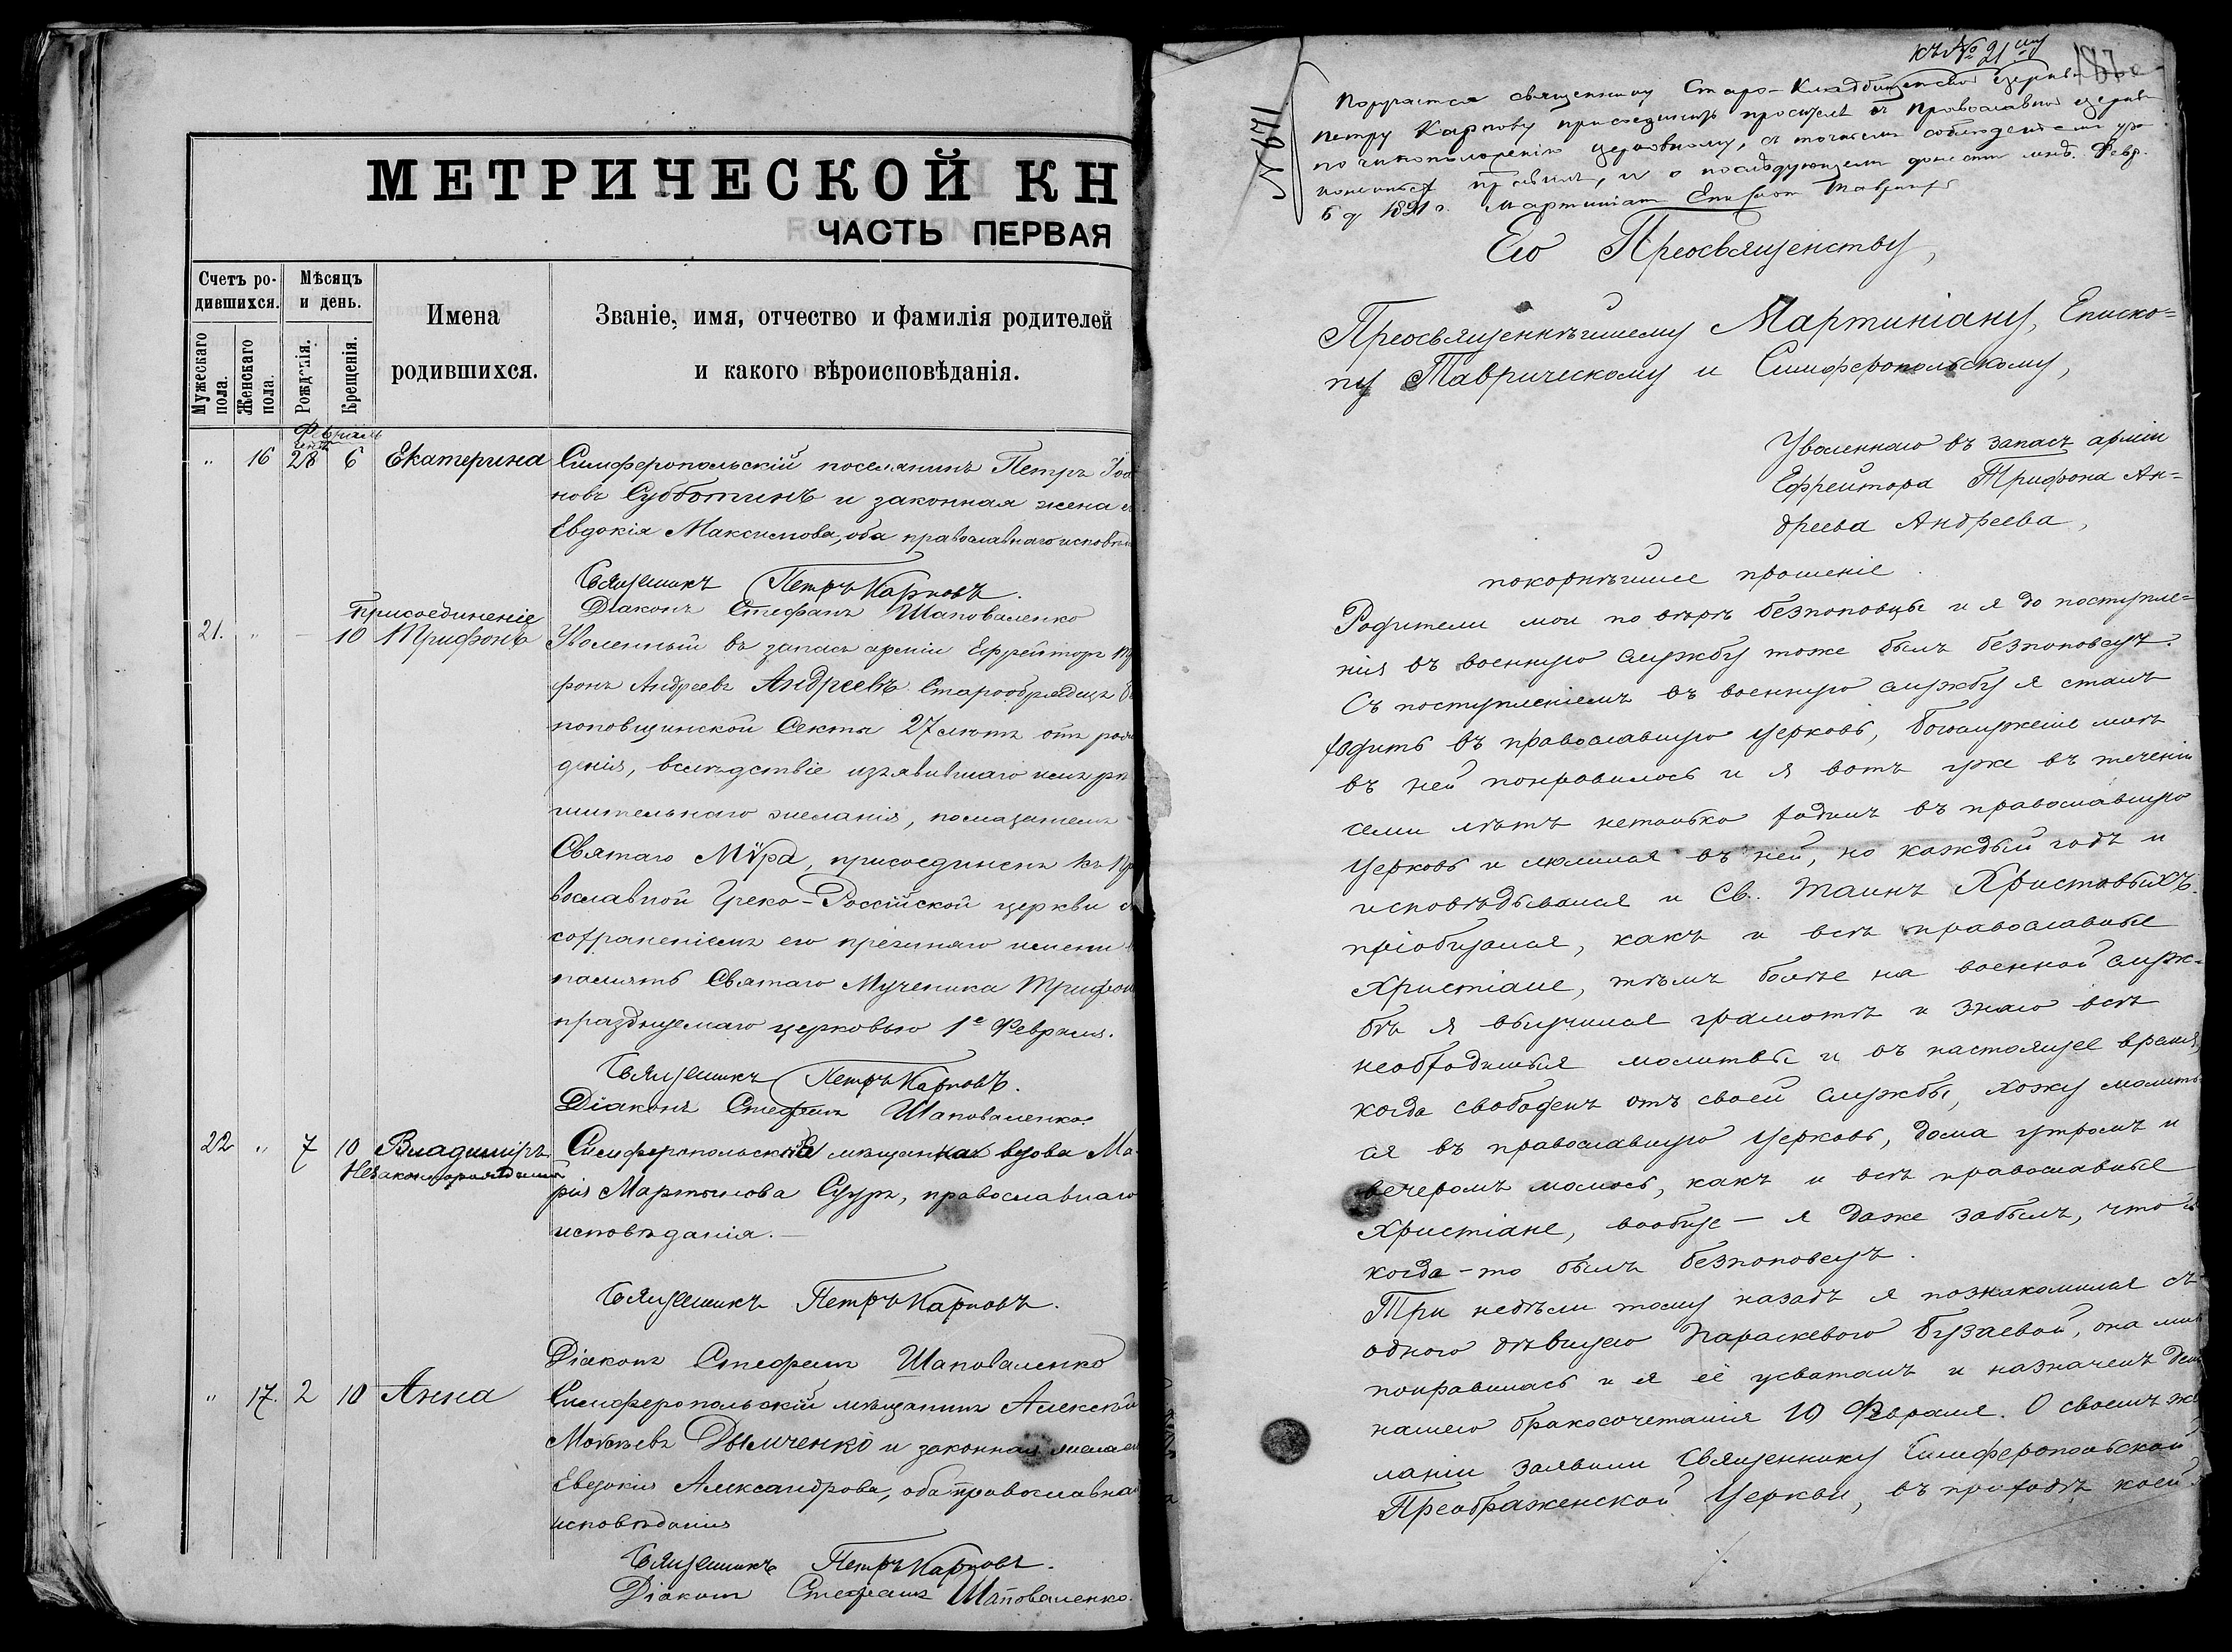 МЕТРИЧЕСКОЙ КН
ЧАСТЬ ПЕРВАЯ
Счетъ ро-
дившихся.
Мѣсяцъ
и день.
Мужескаго
пола.
Женскаго
пола.
Рожденія.
Крещенія.
Имена
родившихся.
Званіе, имя, отчество и фамилія родителей
и какого вѣроисповѣданія.
" 16 28 6 Екатерина Симферопольскій поселянинъ Петръ Іоа
новъ Субботинъ и законная жена
Евдокія Максимова, оба православнаго исповѣ
Священникъ Петръ Карповъ.
Діаконъ Стефанъ Шаповаленко
Присоединеніе
21. " – 10 Трифонъ Уволенный въ запасъ арміи Ефрейторъ Три
фонъ Андреевъ Андреевъ Старообрядецъ
поповщинской Секты 27 лѣтъ отъ рож
денія, вслѣдствіе изъявившаго имъ рѣ
шительнаго желанія, помазаніемъ
Святаго Мѵра, присоединенъ къ Пра
вославной Греко-Россійской церкви съ
сохраненіемъ его прежняго имени
память Святаго Мученика Трифона
празднуемаго церковью 1е Февраля.
Священникъ Петръ Карповъ.
Діаконъ Стефанъ Шаповаленко.
22 " 7 10 Владиміръ Симферопольская мѣщанка вдова Ма-
Незаконнорожденный рія Мартынова Сууръ, православнаго
исповѣданія.
Священникъ Петръ Карповъ.
Діаконъ Стефанъ Шаповаленко
" 17. 2 10 Анна Симферопольскій мѣщанинъ Алексѣй
Моѵсеевъ Дымченко и законная жена
Евдокія Александрова, оба православнаго
исповѣданія
Священникъ Петръ Карповъ.
Діаконъ Стефанъ Шаповаленко.
къ № 21му
187
№ 671
Поручается священнику Старо-Кладбищенской церкви
Петру Карпову присоединить просителя къ православной церкви
по чиноположенію церковному, съ точнымъ соблюденіемъ
правилъ, и о послѣдующемъ донести мнѣ. Февр.
6 д 1891 г. Мартиніанъ Епископъ Таврическій
Его Преосвященству,
Преосвященнѣйшему Мартиніану, Еписко=
пу Таврическому и Симферопольскому,
Уволеннаго въ запасъ арміи
Ефрейтора Трифона Ан=
дреева Андреева,
покорнѣйшее прошеніе.
Родители мои по вѣрѣ безпоповцы и я до поступле=
нія въ военную службу тоже былъ безпоповецъ.
Съ поступленіемъ въ военную службу я сталъ
ходить въ православную церковь, богослуженіе мнѣ
въ ней понравилось и я вотъ уже въ теченіи
семи лѣтъ нетолько ходилъ въ православную
церковь и молился въ ней, но каждый годъ и
исповѣдывался и Св. Таинъ Христовыхъ
пріобщался, какъ и всѣ православные
Христіане, тѣмъ болѣе на военной служ=
бѣ я выучился грамотѣ и знаю всѣ
необходимыя молитвы и въ настоящее время,
когда свободенъ отъ своей службы, хожу молить
ся въ православную церковь, дома утромъ и
вечеромъ молюсь, какъ и всѣ православные
Христіане, вообще – я даже забылъ, что я
когда-то былъ безпоповецъ.
Три недѣли тому назадъ я познакомился съ
одною дѣвицею Параскевою Бузаевой, она мнѣ
понравилась и я её усваталъ и назначенъ день
нашего бракосочетанія 10 Февраля. О своемъ же
ланіи заявили Священнику Симферопольской
Преображенской Церкви, въ приходѣ коей